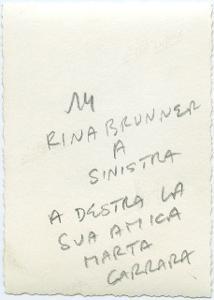 14
RINA BRUNNER
A
SINISTRA
A DESTRA LA
SUA AMICA
MARTA
CARRARA